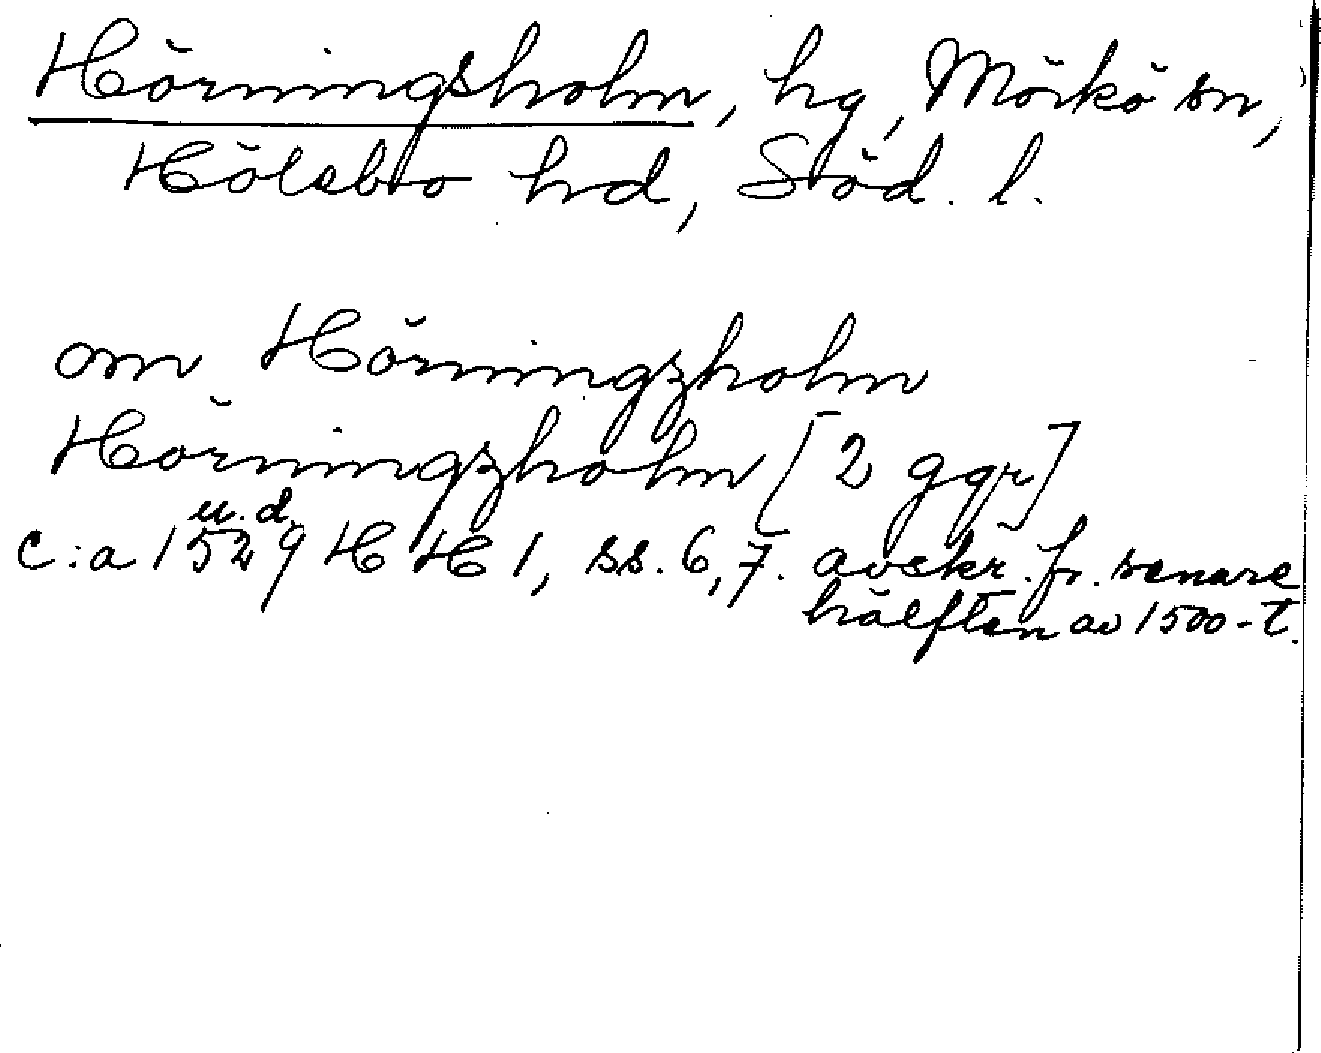 Hörningsholm, hg, Mörkö sn,
Hölebo hd, Söd. l.
om Hörningzholm
Hörningzholm [2 ggr]
u.d.
c:a 1529 HH 1, ss. 6, 7. avskr. fr. senare
hälften av 1500-t.